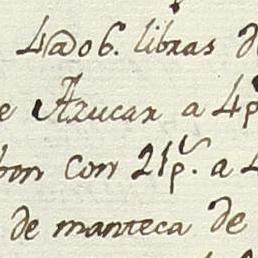 4@06. libras d
e Azucar a 4p
bon con 21p.s a 4
de manteca de